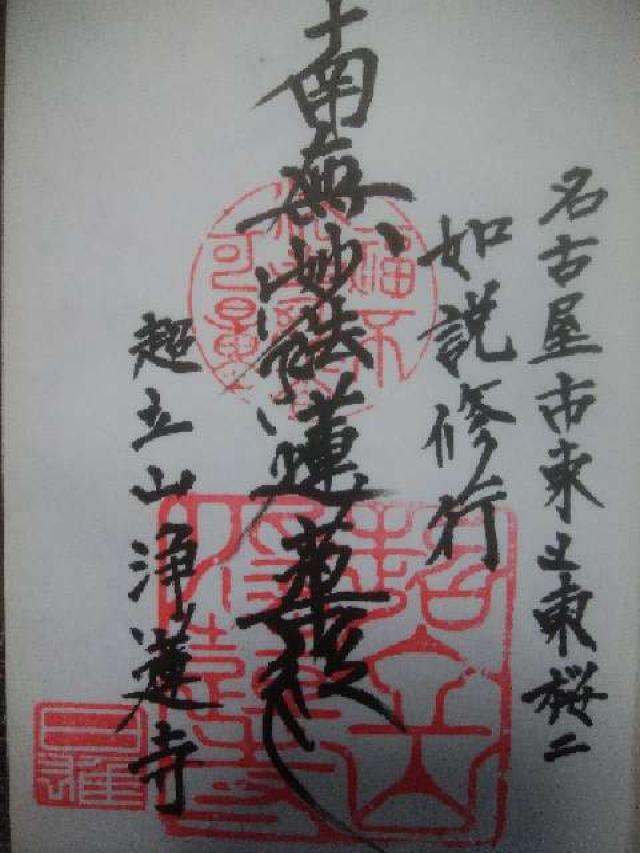 名古屋市東区東桜二
如説修行
南無妙法蓮華経
超立山浄蓮寺